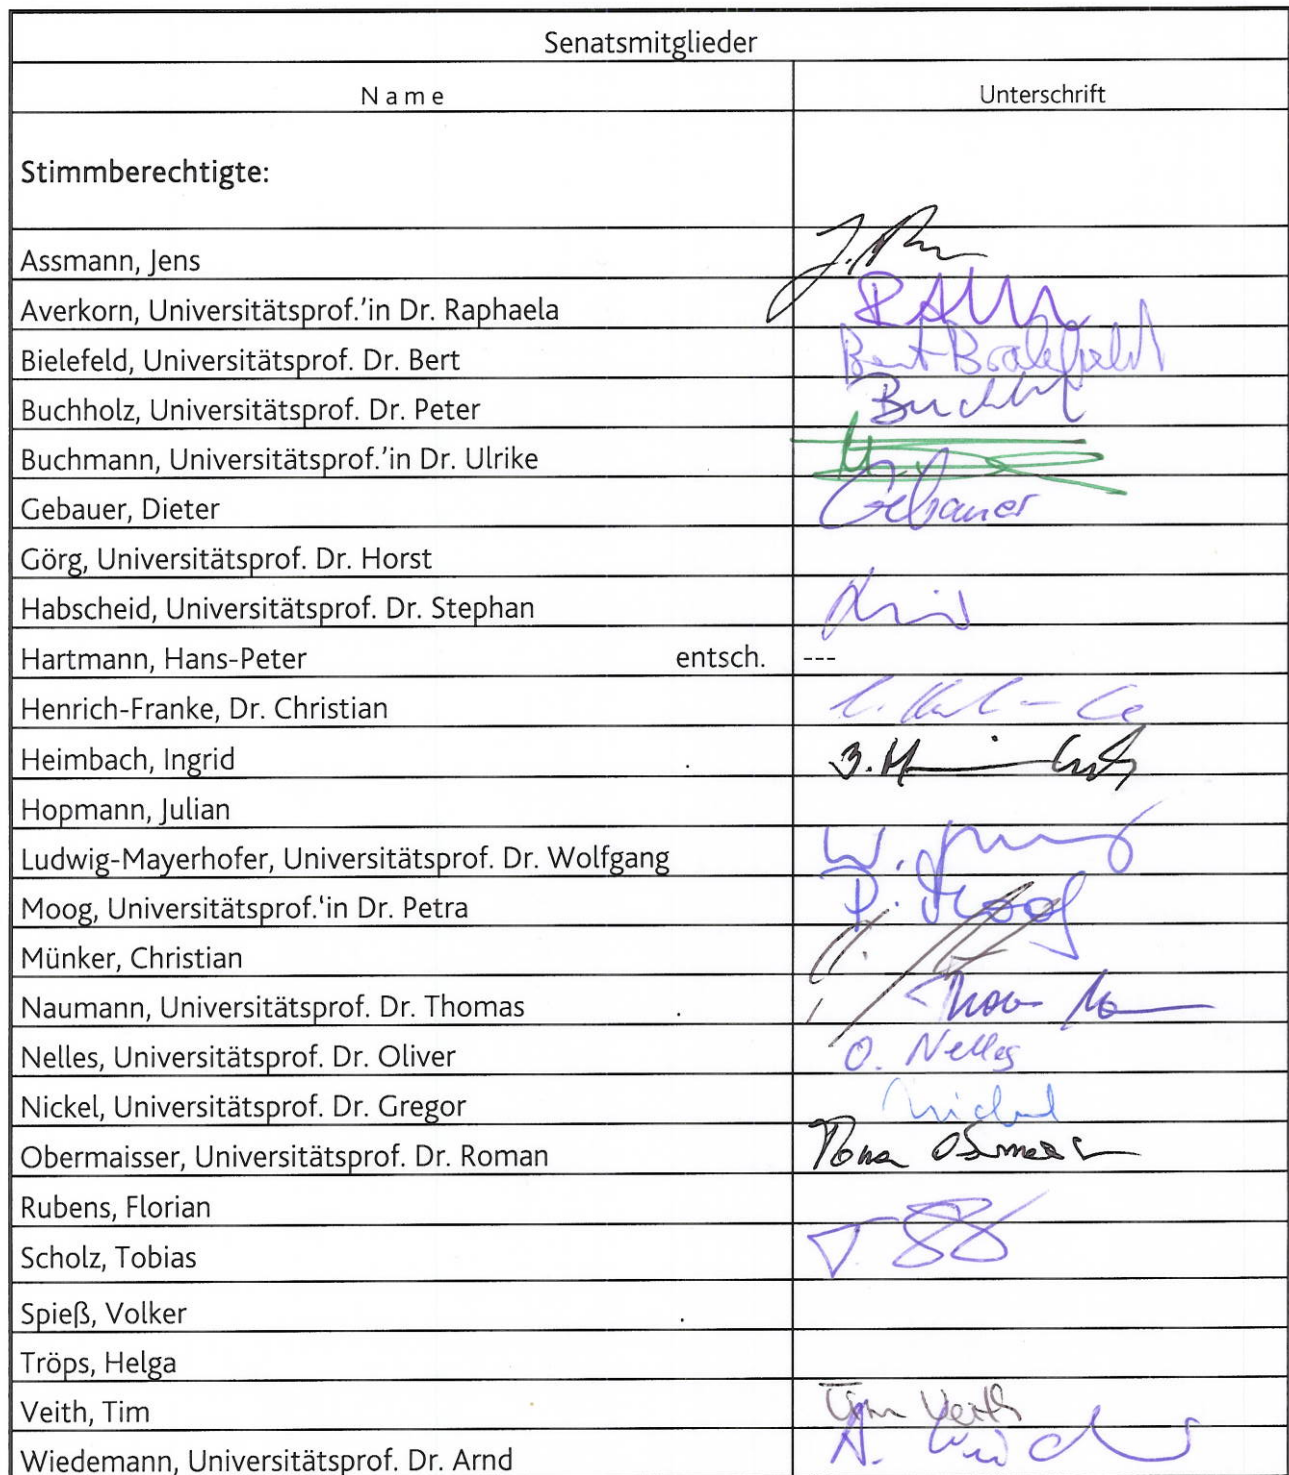 Senatsmitglieder
Name Unterschrift
Stimmberechtigte:
Assmann, Jens
Averkorn, Universitätsprof.'in Dr. Raphaela
Bielefeld, Universitätsprof. Dr. Bert Bert Bielefeld
Buchholz, Universitätsprof. Dr. Peter
Buchmann, Universitätsprof.'in Dr. Ulrike
Gebauer, Dieter Gebauer
Görg, Universitätsprof. Dr. Horst
Habscheid, Universitätsprof. Dr. Stephan
Hartmann, Hans-Peter entsch. ---
Henrich-Franke, Dr. Christian
Heimbach, Ingrid
Hopmann, Julian
Ludwig-Mayerhofer, Universitätsprof. Dr. Wolfgang
Moog, Universitätsprof.‘in Dr. Petra P. Moog
Münker, Christian
Naumann, Universitätsprof. Dr. Thomas
Nelles, Universitätsprof. Dr. Oliver O. Nelles
Nickel, Universitätsprof. Dr. Gregor
Obermaisser, Universitätsprof. Dr. Roman
Rubens, Florian
Scholz, Tobias
Spieß, Volker
Tröps, Helga
Veith, Tim Tim Veith
Wiedemann, Universitätsprof. Dr. Arnd